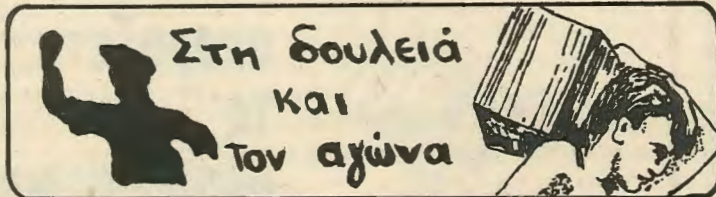 Στη δουλειά
και
τον αγώνα